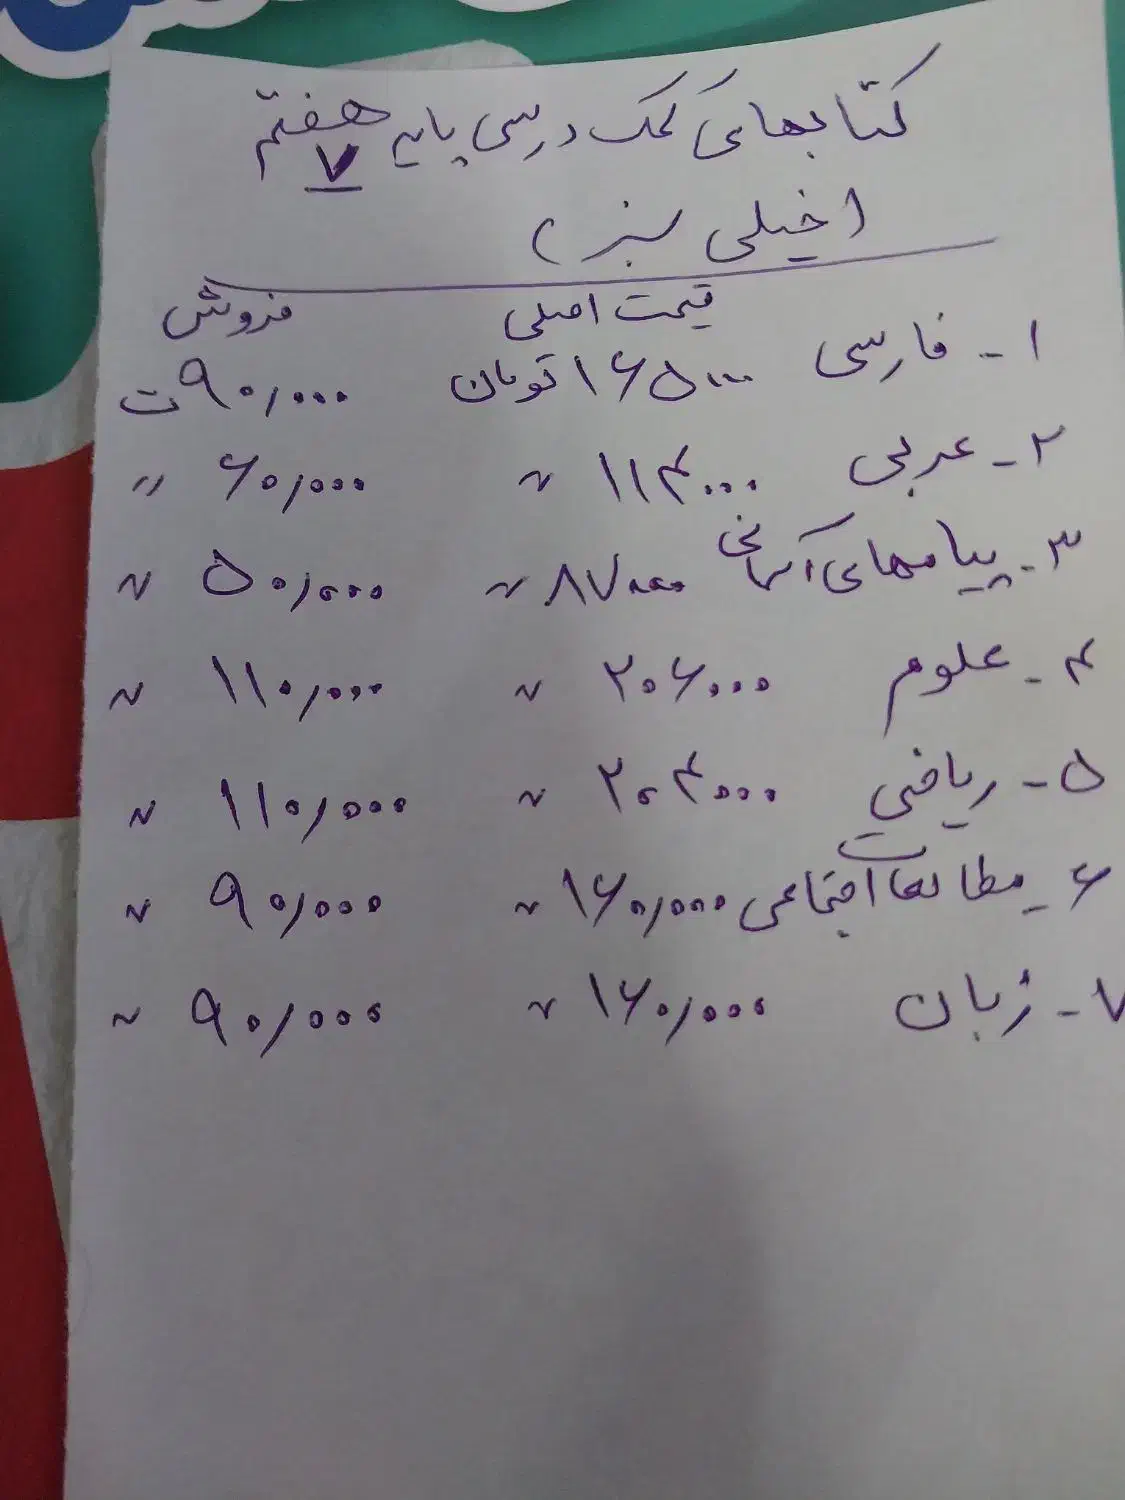 کتابهای کمک درسی پایه هفتم
۷
(خیلی سبز)
قیمت اصلی فروش
۱- فارسی ۱۶۵۰۰۰ تومان ۹۰/۰۰۰ ت
۲- عربی ۱۱۴۰۰۰ " ۶۰/۰۰۰ "
۳- پیامهای آسمانی ۸۷۰۰۰ " ۵۰/۰۰۰ "
۴- علوم ۲۰۶۰۰۰ " ۱۱۰/۰۰۰ "
۵- ریاضی ۲۰۴۰۰۰ " ۱۱۰/۰۰۰ "
۶- مطالعات اجتماعی ۱۶۰/۰۰۰ " ۹۰/۰۰۰ "
۷- زبان ۱۶۰/۰۰۰ " ۹۰/۰۰۰ "